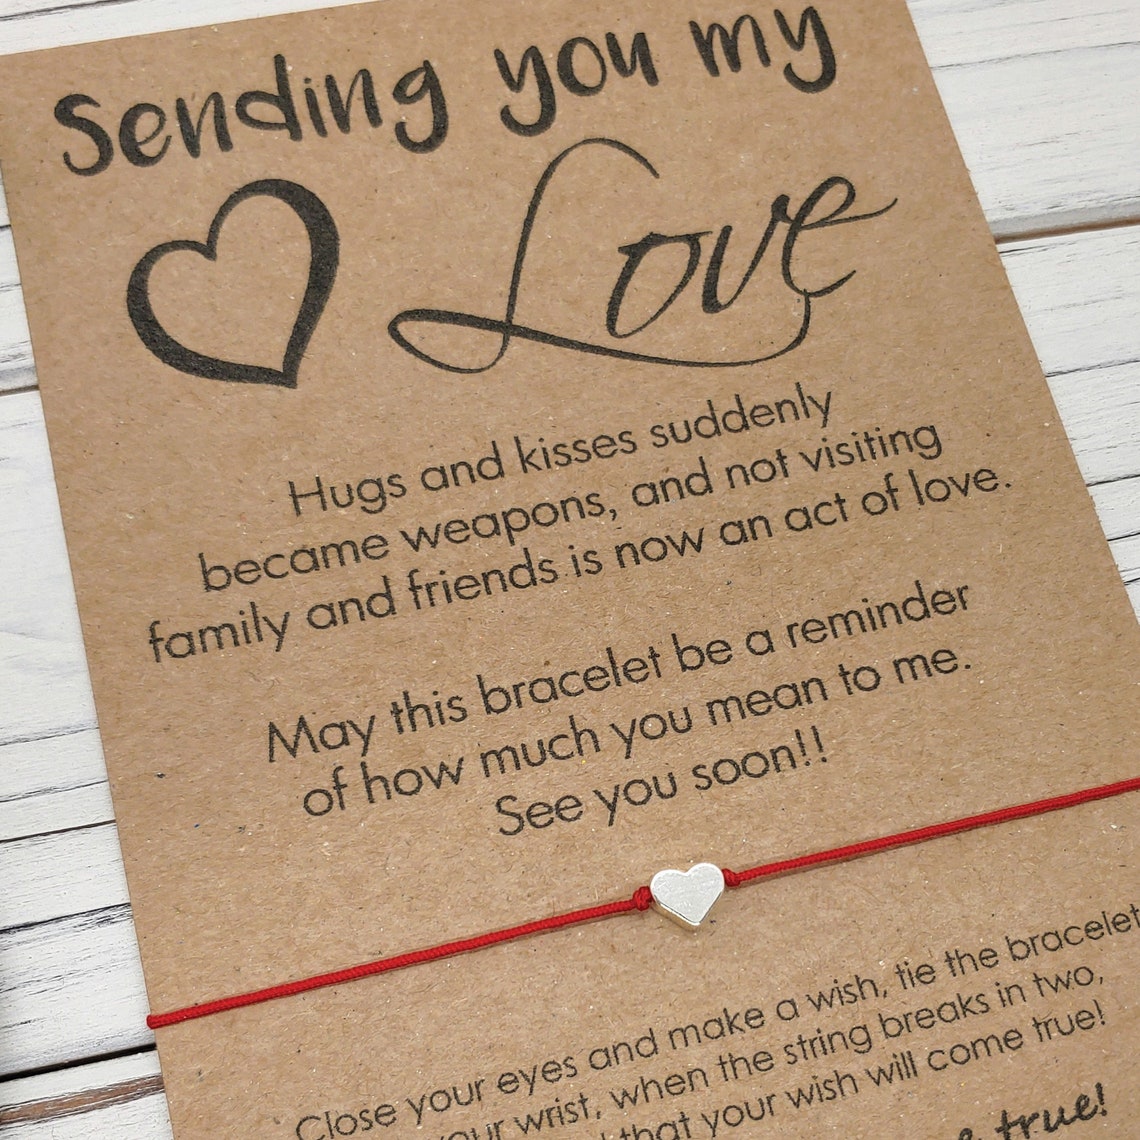 Sending you my
Love
Hugs and kisses suddenly
became weapons, and not visiting
family and friends is now an act of love.
May this bracelet be a reminder
of how much you mean to me.
See you soon!!
Close your eyes and make a wish, tie the bracelet
your wrist, when the string breaks in two,
that your wish will come true!
true!